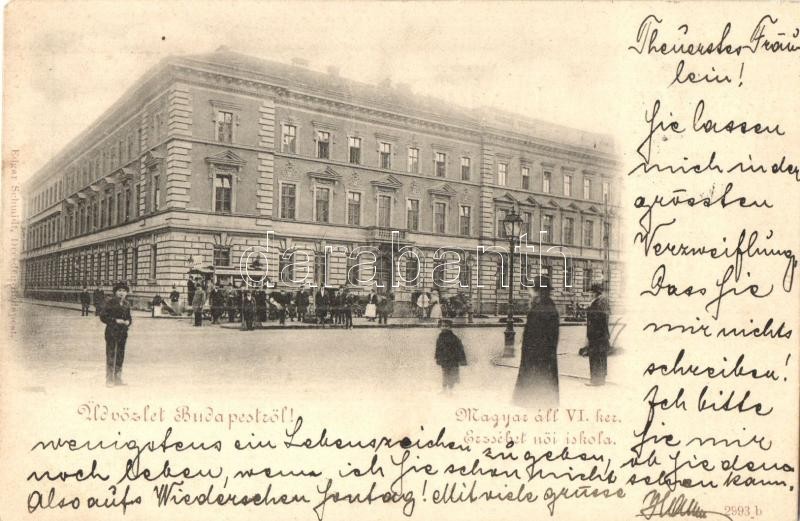 Theuerstes Fräu-
lein!
Sie lassen
mich in der
grössten
Verzweiflung,
Dass Sie
mir nichts
schreiben!
Ich bitte
Sie mir
wenigstens ein Lebenszeichen zu geben, ob Sie denn
noch leben, wenn ich Sie schon nicht sehen kann.
Also aufs Wiedersehen Sontag! Mit viele grüsse
Üdvözlet Budapestről!
Magyar áll VI. ker.
Erzsébet női iskola.
2993 b
Edgar Schmidt,
darabanth